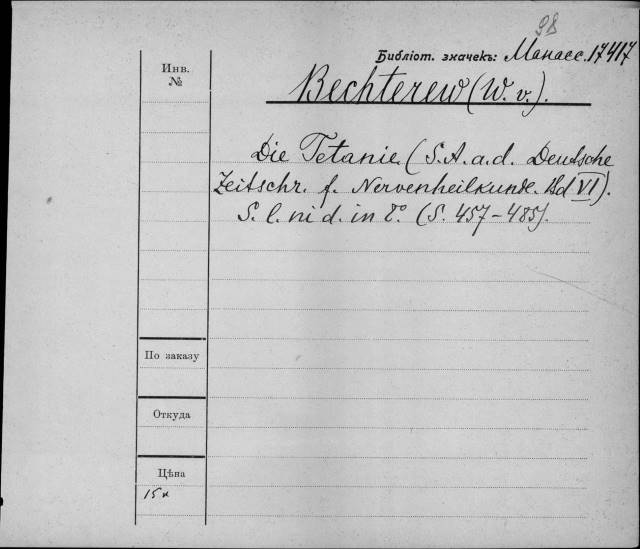 98
Библіот. значекъ: Манасс. 17417
Инв.
№
Bechterew (W. v.).
Die Tetanie (S. A. a. d. Deutsche
Zeitschr. f. Nervenheilkunde. Bd VI).
S. l. ni d. in 8º. (S. 457-485).
По заказу
Откуда
Цѣна
15 к